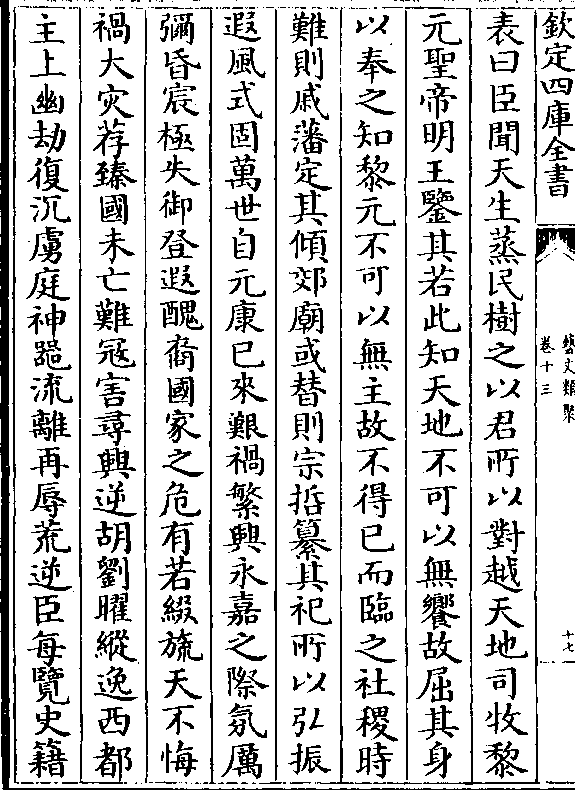 欽定四庫全書
藝文類聚
卷十三
十七
表曰臣聞天生蒸民樹之以君所以對越天地司牧黎
元聖帝明王鑒其若此知天地不可以無饗故屈其身
以奉之知黎元不可以無主故不得已而臨之社稷時
難則戚藩定其傾郊廟或替則宗哲纂其祀所以弘振
遐風式固萬世自元康已來艱禍繁興永嘉之際氛厲
彌昏宸極失御登遐醜裔國家之危有若綴旒天不悔
禍大灾荐臻國未亡難寇害尋興逆胡劉曜縱逸西都
主上幽劫復沉虜庭神器流離再辱荒逆臣每覽史籍